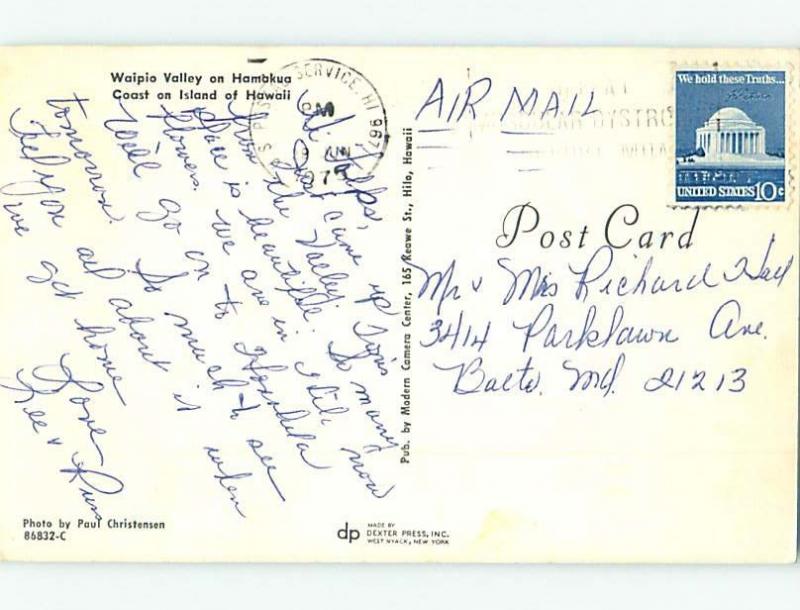 Waipio Valley on Hamakua
Coast on Island of Hawaii
Hi Folks,
Just came up
from the Valley. This
place is beautiful. So many
flowers. We are in Hilo now
We'll go on to Honolulu
tomorrow. So much to see
Tell you all about it when
we get home
Love
Lee &
Photo by Paul Christensen
86832-C
Pub. by Modern Camera Center, 165 Keawe St., Hilo, Hawaii
dp
MADE BY
DEXTER PRESS, INC.
WEST NYACK, NEW YORK
SERVICE, HI 967
PM
JUN
1975
AIR MAIL
We hold these Truths...
UNITED STATES 10c
Post Card
Mr & Mrs Richard Hall
3414 Parklawn Ave.
Balto. Md. 21213